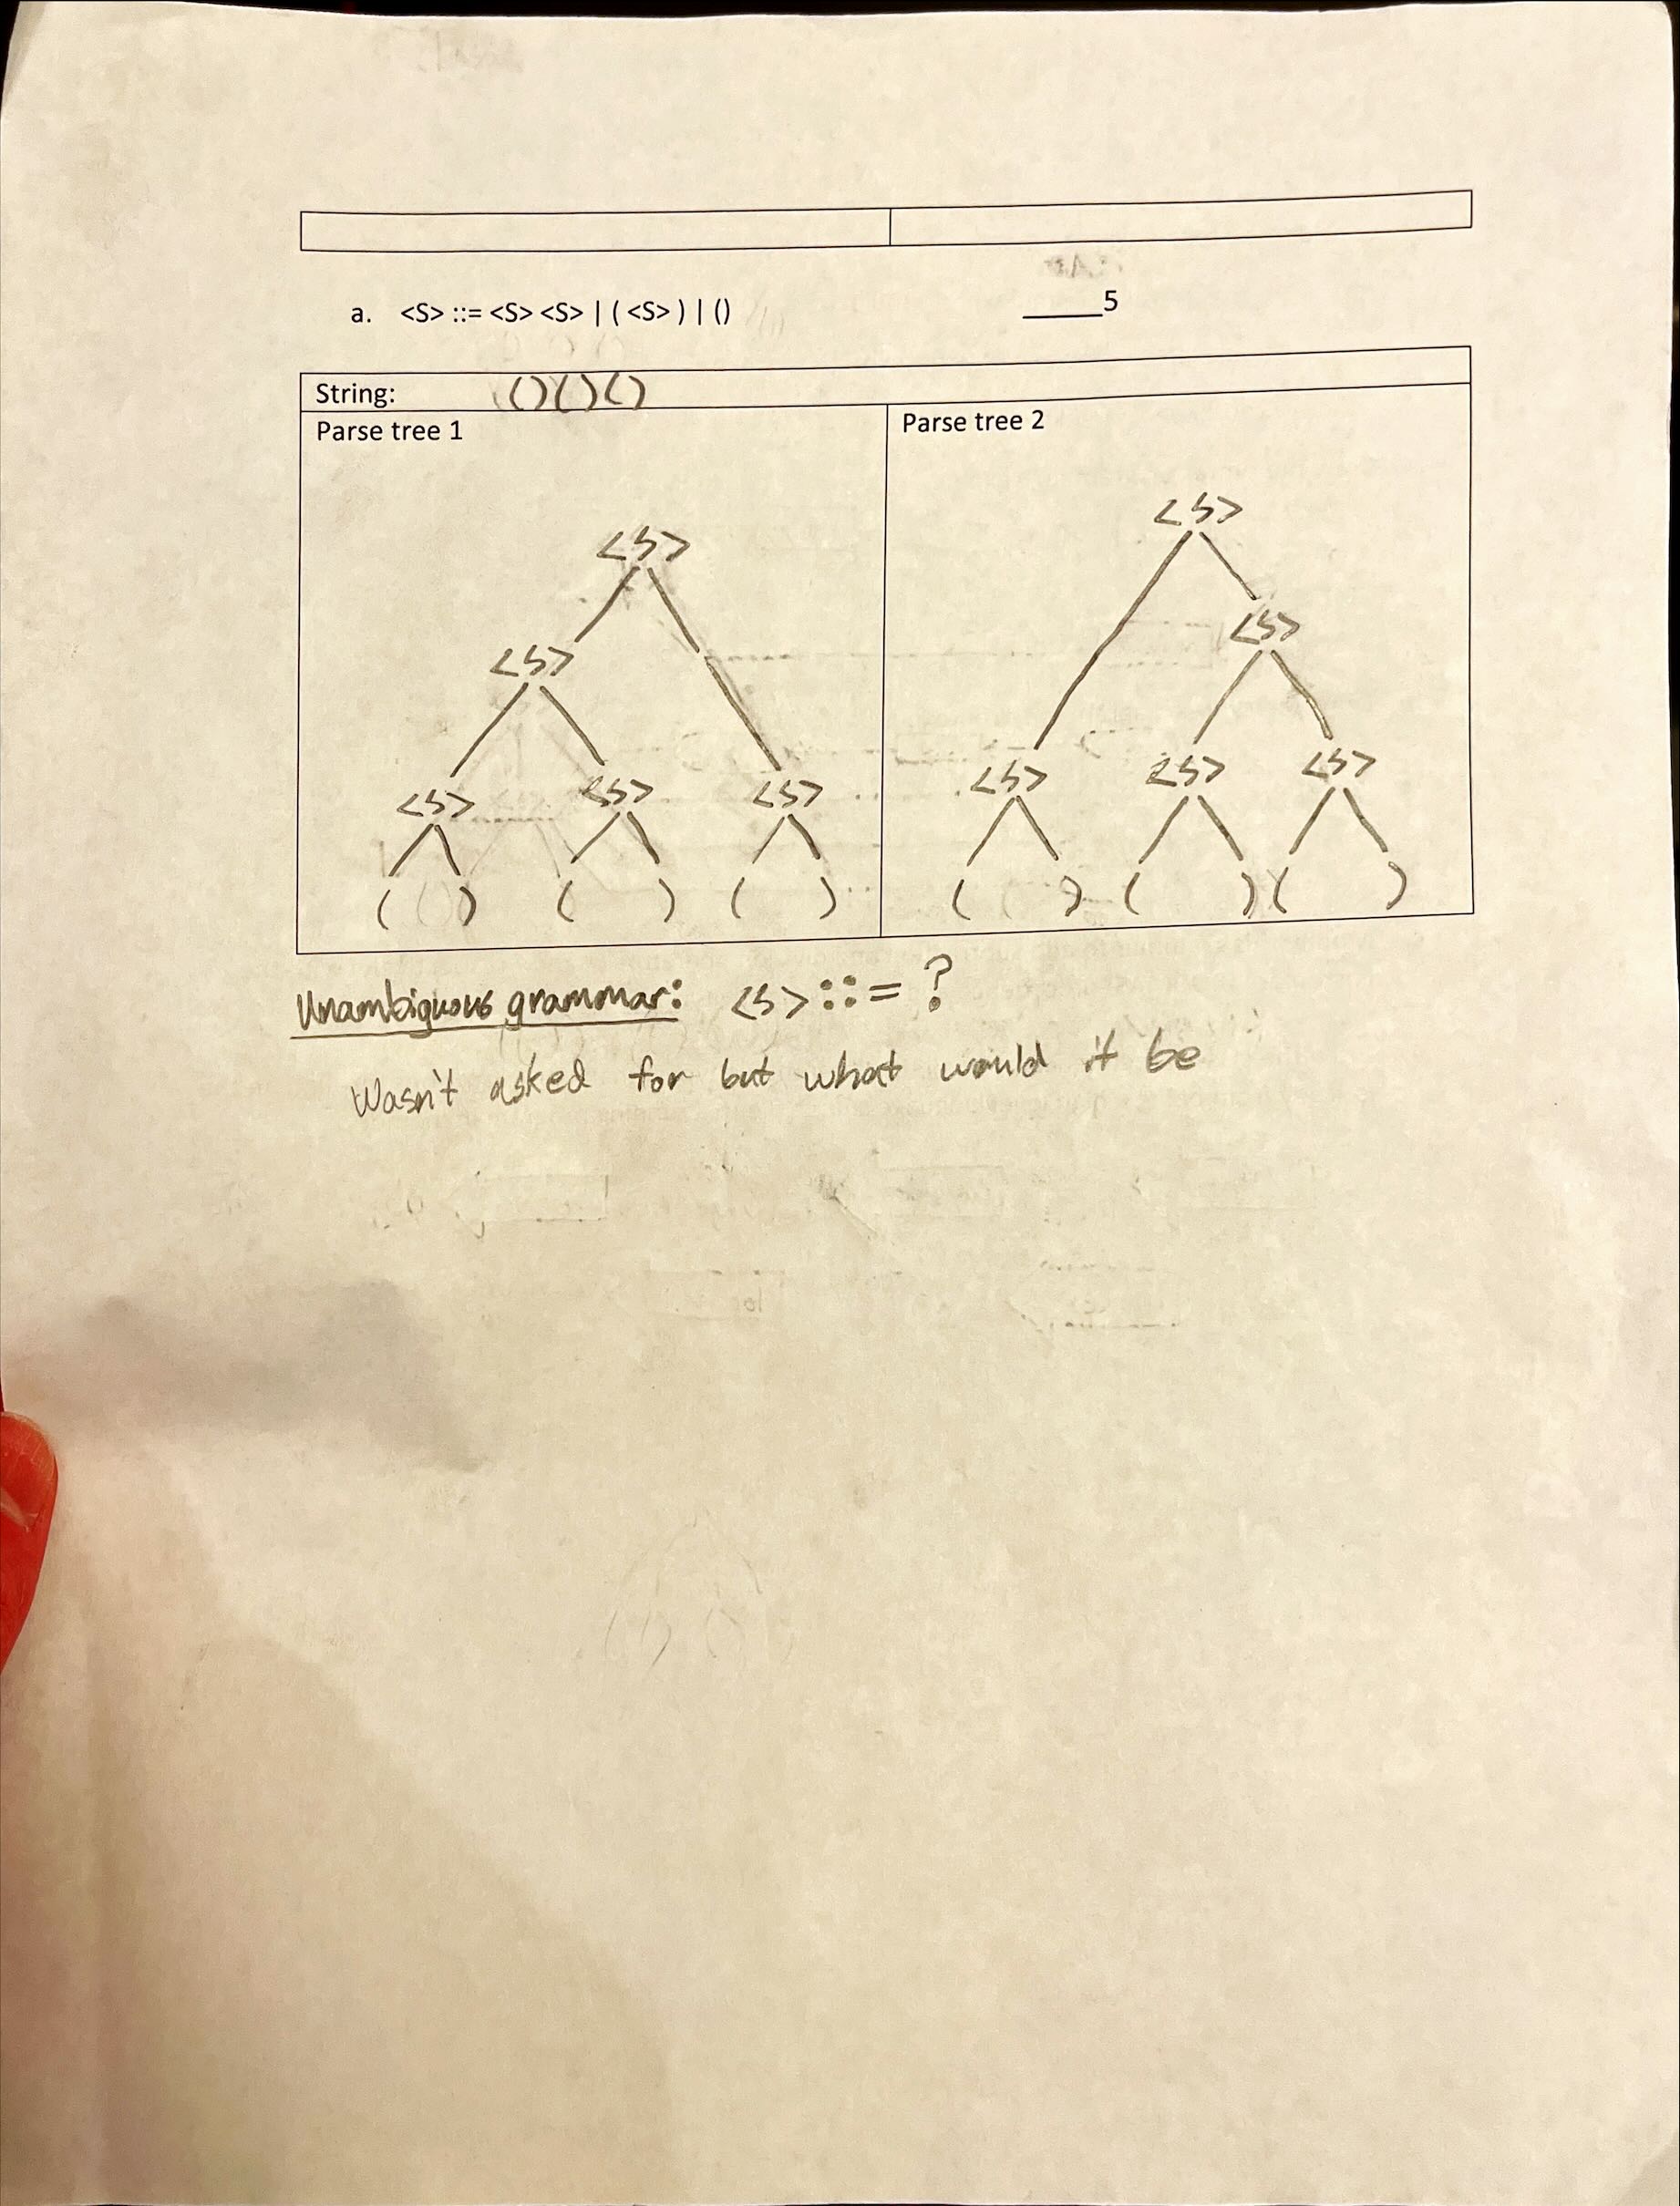 a. <S> ::= <S> <S> | ( <S> ) | () _____5
String: ()()()
Parse tree 1 Parse tree 2
<S> <S>
<S> <S>
<S> <S> <S> <S> <S> <S>
( ) ( ) ( ) ( ) ( ) ( )
Unambiguous grammar: <S> ::= ?
Wasn't asked for but what would it be